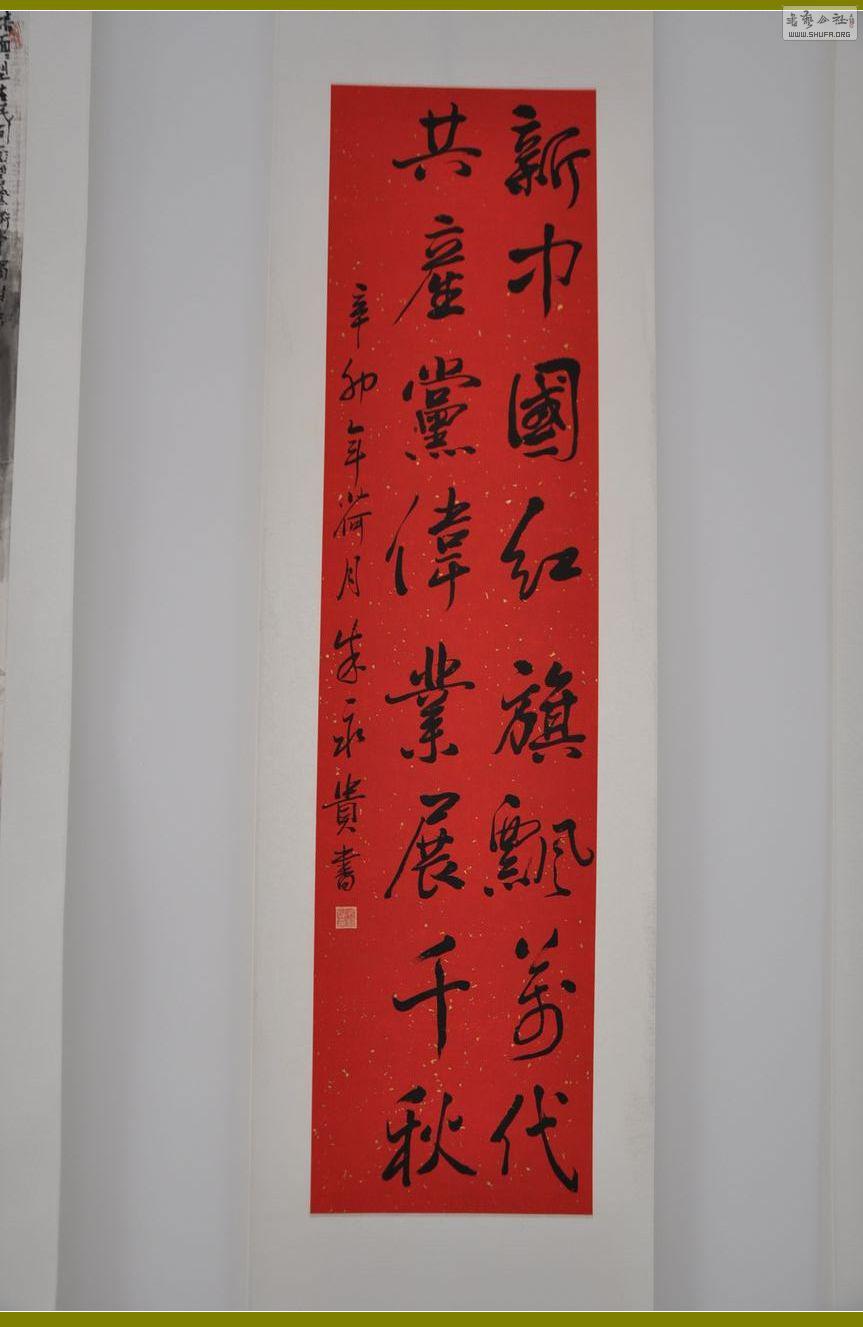 新中國紅旗飄萬代
共產黨偉業展千秋
辛卯年荷月朱永貴書
書藝公社
WWW.SHUFA.ORG